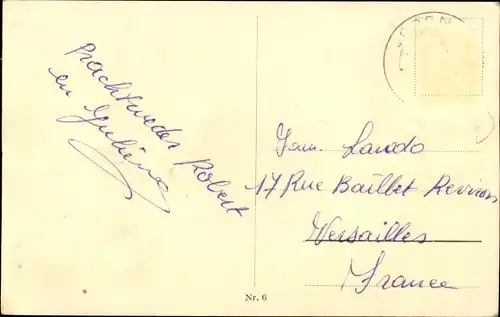 Prachtweder Robert
en Gyuliena
Fam. Lando
17 Rue Baillet Reviron
Versailles
France
Nr. 6